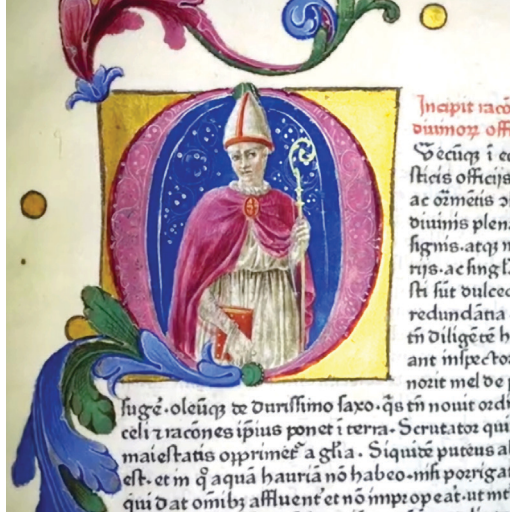 Incipit racō
diuinoꝝ offi
Uecūqꝫ ī ec
sticis officijs
ac ōrmētis
diuinis plena
signis·atqꝫ m
rijs·ac sing̃l'a
sti sūt dulced
redundātia
tñ diligētē h
ant inspector
norit mel de p
sugē·oleūqꝫ de durissimo saxo·q̄s tñ nouit ordi
celi ⁊ racōnes ip̄ius ponet ī terra·Scrutator qui
maiestatis opprimet᷑ a gl̄ia·Siquidē puteus al
est·et in q̊ aquā hauriā nō habeo·nisi porrigat
qui dat om̄ibꝫ affluent᷑ et nō improperat·ut mt